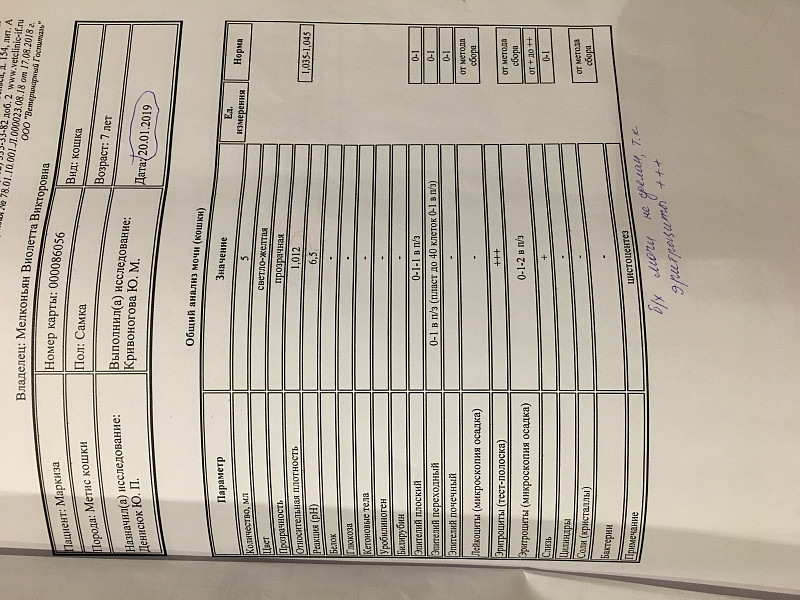 д. 154, лит. А
333-33-82 доб. 2 www.vetclinic-if.ru
№ 78.01.10.001.Л.000023.08.18 от 17.08.2018 г.
ООО "Ветеринарный Госпиталь"
Владелец: Мелконьян Виолетта Викторовна
Пациент: Маркиза Номер карты: 000086056 Вид: кошка
Порода: Метис кошки Пол: Самка Возраст: 7 лет
Назначил(а) исследование: Денисюк Ю. П. Выполнил(а) исследование: Кривоногова Ю. М. Дата: 20.01.2019
Общий анализ мочи (кошки)
Параметр Значение Ед. измерения Норма
Количество, мл 5
Цвет светло-желтая
Прозрачность прозрачная
Относительная плотность 1,012 1,035-1,045
Реакция (pH) 6,5
Белок -
Глюкоза -
Кетоновые тела -
Уробилиноген -
Билирубин -
Эпителий плоский 0-1-1 в п/з 0-1
Эпителий переходный 0-1 в п/з (пласт до 40 клеток 0-1 в п/з) 0-1
Эпителий почечный - 0-1
Лейкоциты (микроскопия осадка) - от метода сбора
Эритроциты (тест-полоска) +++
Эритроциты (микроскопия осадка) 0-1-2 в п/з от метода сбора
Слизь + от + до ++
Цилиндры - 0-1
Соли (кристаллы) -
Бактерии - от метода сбора
Примечание цистоцентез
б/х мочи не сделан, т.к.
эритроциты +++